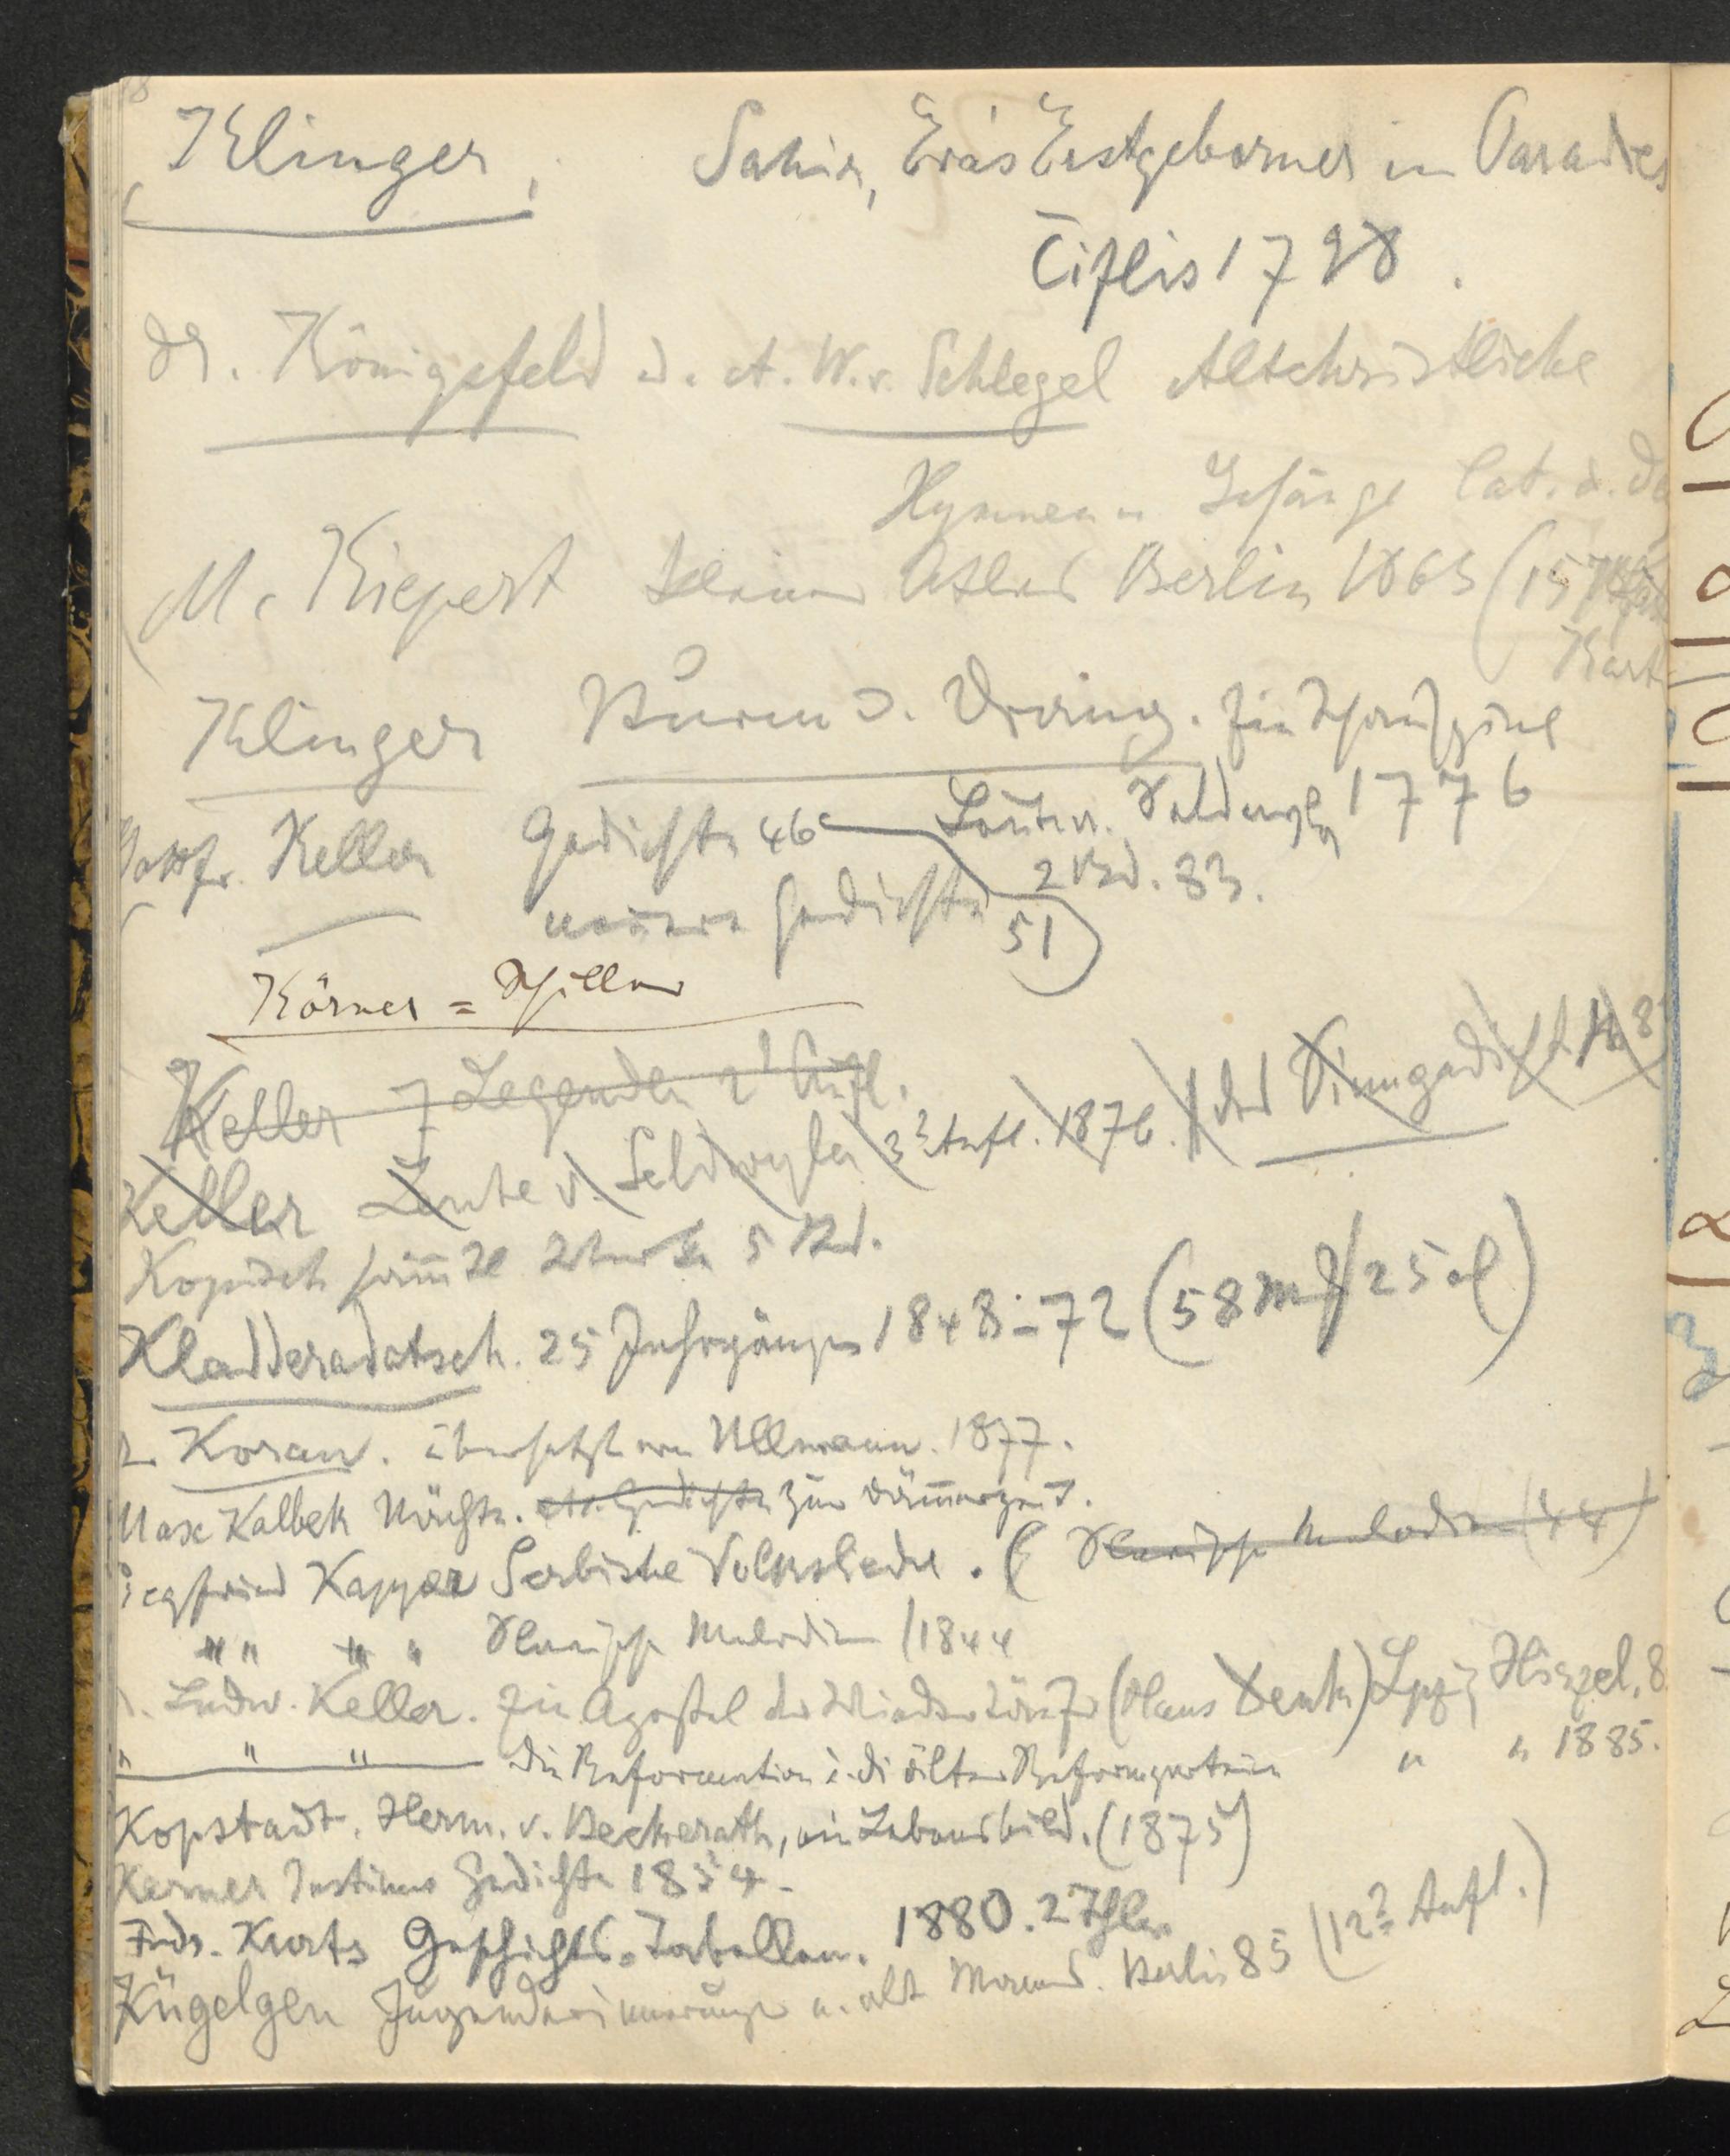 Klinger, Sahir, Eva's Erstgeborner im Paradies
Tiflis 1798.
Dr. Königsfeld u. A. W. v. Schlegel Altchristliche
Hymnen u Gesänge lat. u. D
Kiepert kleiner Atlas Berlin 1863 (15
Kart
Klinger Sturm u. Drang. Ein Schauspiel
1776
Gottfr. Keller Gedichte 46 Leute v. Seldwyla
2 Bd. 83.
neuere Gedichte 51
Körner = Schiller
Keller 7 Legenden 2t Aufl.
Keller Leute v. Seldwyla 3t Aufl. 1876. das Sinngedicht
Kopisch sämtl Werke 5 Bd.
Kladderadatsch. 25 Jahrgänge 1848-72 (58 M 25 )
Koran. übersetzt von Ullmann. 1877.
Max Kalbek Nächte. Gedichte zur Dämmerzeit.
Siegfried Kapper Serbische Volkslieder. ( Slavische Melodien (44)
" " " " Slavische Melodien (1844
Ludw. Keller. Ein Apostel der Wiedertäufer (Hans Denk) Lpzg Hirzel, 8
" " " die Reformation u. die ältern Reformparteien " " 1885.
Kopstadt. Herm. v. Beckerath, ein Lebensbild. (1875)
Kerner Justinus Gedichte 1854.
Frdr. Kurts Geschichts-Tabellen. 1880. 2 Thle.
Kügelgen Jugenderinnerungen e. alt Mannes. Berlin 85 (12t Aufl.)